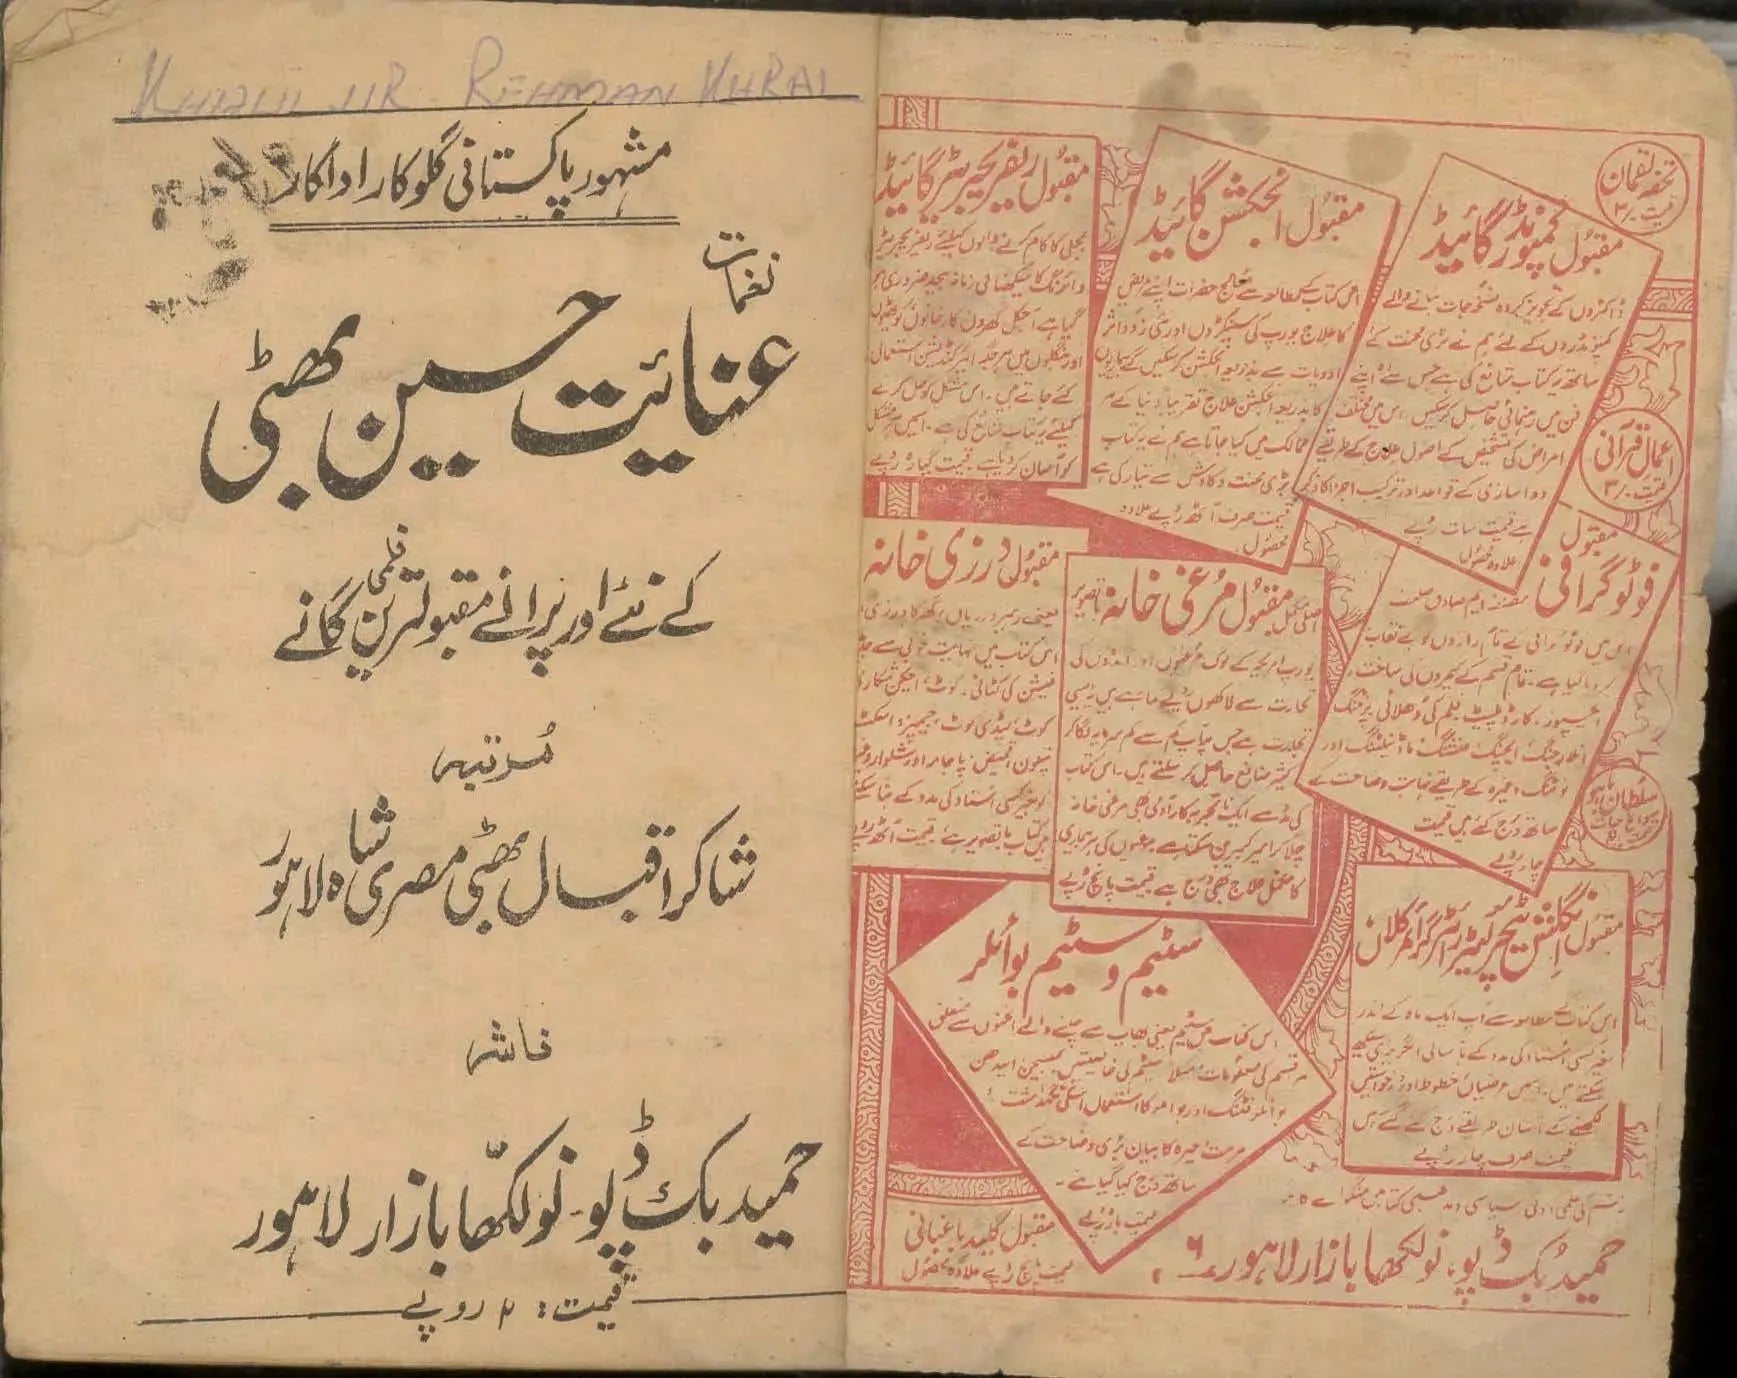 REHMAN KHRAL
مشہور پاکستانی گلوکار اداکار
نغمات
عنائیت حسین بھٹی
کے نئے اور پرانے مقبولترین فلمی گانے
مُرتبہ
شاکر اقبال بھٹی مصری شاہ لاہور
ناشر
حمید بک ڈپو۔ نولکھا بازار لاہور
قیمت: ۲ روپے
تحفہ لقمان
قیمت ۳/۰
مقبول کمپونڈر گائیڈ
ڈاکٹروں کے تجویز کردہ نسخہ جات بنانے والے
کمپونڈروں کے لئے ہم نے بڑی محنت کے
ساتھ یہ کتاب شائع کی ہے جس سے وہ اپنے
فن میں رہنمائی حاصل کرسکیں۔ اس میں مختلف
امراض کی تشخیص کے اصول علاج کے طریقے
دوا سازی کے قواعد اور ترکیب اجزا کا ذکر
ہے قیمت سات روپے
علاوہ محصول
مقبول انجکشن گائیڈ
اس کتاب کے مطالعہ سے معالج حضرات اپنے مریض
کا علاج یورپ کی سینکڑوں اور نئی زود اثر
ادویات سے بذریعہ انجکشن کرسکیں گے بیماریوں
کا بذریعہ انجکشن علاج تقریباً دنیا کے ہر
ممالک میں کیا جاتا ہے ہم نے یہ کتاب
بڑی محنت و کاوش سے تیار کی ہے
قیمت صرف آٹھ روپے علاوہ
محصول
مقبول ریفریجریٹر گائیڈ
بجلی کا کام کرنے والوں کیلئے ریفریجریٹر
وائرنگ کا سیکھنا فی زمانہ بیحد ضروری ہو
گیا ہے آجکل گھروں کارخانوں کوٹھیوں
اور بنگلوں میں ہر جگہ ایئرکنڈیشن استعمال
کئے جاتے ہیں۔ اس مشکل کو حل کرنے
کیلئے یہ کتاب شائع کی ہے۔
کو آسان کر دیا ہے قیمت گیارہ روپے
اعمال قرآنی
قیمت ۳/۰
مقبول
فوٹو گرافی
اس میں فوٹو گرافی کے تمام رازوں کو بے نقاب
کر دیا گیا ہے۔ تمام قسم کے کیمروں کی ساخت،
ایکسپوزر، کارڈ پلیٹ فلم کی دھلائی پرنٹنگ
انلارجنگ
وغیرہ کے طریقے نہایت وضاحت سے
ساتھ درج کئے ہیں قیمت
چار روپے
اصلی مکمل مقبول مرغی خانہ باتصویر
یورپ امریکہ کے لوگ مرغیوں اور انڈوں کی
تجارت سے لاکھوں روپے کماتے ہیں یہ ایسی
تجارت ہے جس میں آپ کم سے کم سرمایہ لگا کر
کثیر منافع حاصل کر سکتے ہیں۔ اس کتاب
کی مدد سے ایک ناتجربہ کار آدمی بھی مرغی خانہ
چلا کر امیر کبیر بن سکتا ہے مرغیوں کی ہر بیماری
کا مکمل علاج بھی درج ہے قیمت پانچ روپے
مقبول درزی خانہ
اس کتاب میں نہایت خوبی سے
فیشن کی کٹائی۔ کوٹ، اچکن
کوٹ، لیڈی کوٹ، جمپر، اسکرٹ
پتلون، قمیض، پاجامہ اور شلوار
کو بغیر کسی استاد کی مدد کے
ہیں کتاب باتصویر ہے قیمت آٹھ روپے
سٹیم و سٹیم بوائلر
اس کتاب میں سٹیم یعنی بھاپ سے چلنے والے انجنوں سے متعلق
ہر قسم کی معلومات مثلاً سٹیم کی خاصیتیں
مرمت وغیرہ کا بیان بڑی وضاحت کے
ساتھ درج کیا گیا ہے۔
مقبول انگلش ٹیچر لیٹر رائٹر گرائمر کلاں
اس کتاب کے مطالعہ سے آپ ایک ماہ کے اندر
بغیر کسی استاد کی مدد کے بآسانی انگریزی سیکھ
سکتے ہیں۔ اس میں عرضیاں خطوط اور درخواستیں
لکھنے کے آسان طریقے درج کئے گئے ہیں
قیمت صرف چار روپے
مقبول کلید باغبانی
قیمت پانچ روپے علاوہ محصول
حمید بک ڈپو، نولکھا بازار لاہور۔۶